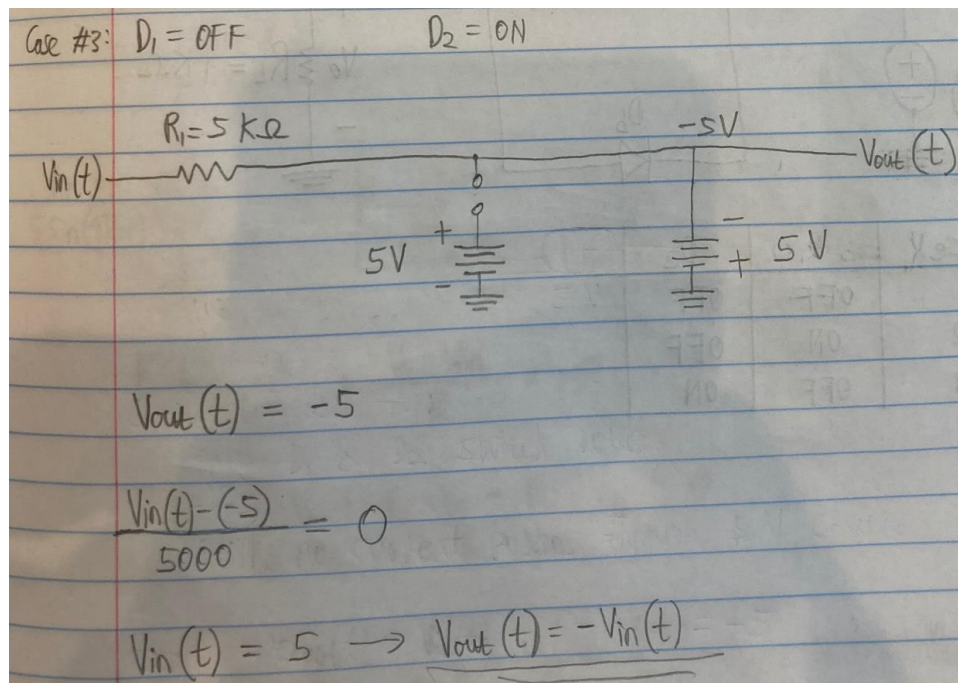 Case #3: D₁ = OFF D₂ = ON
R₁ = 5 KΩ
-5V
Vin(t)
Vout(t)
+ 5V -
- + 5V
Vout(t) = -5
Vin(t)-(-5) / 5000 = 0
Vin(t) = 5 → Vout(t) = -Vin(t)